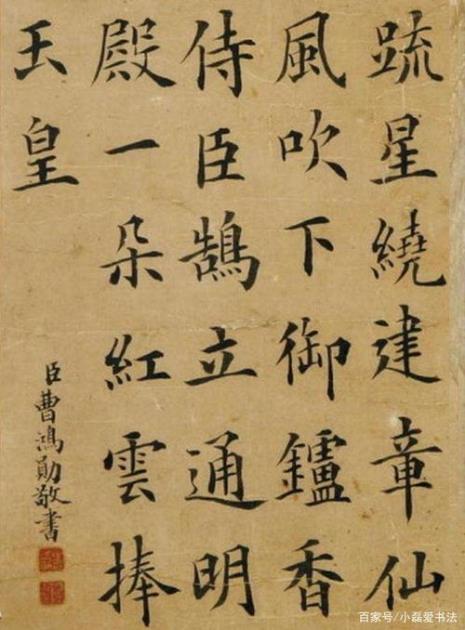 疏星繞建章仙
風吹下御鑪香
侍臣鵠立通明
殿一朵紅雲捧
玉皇
臣曹鴻勛敬書
百家号/小磊爱书法